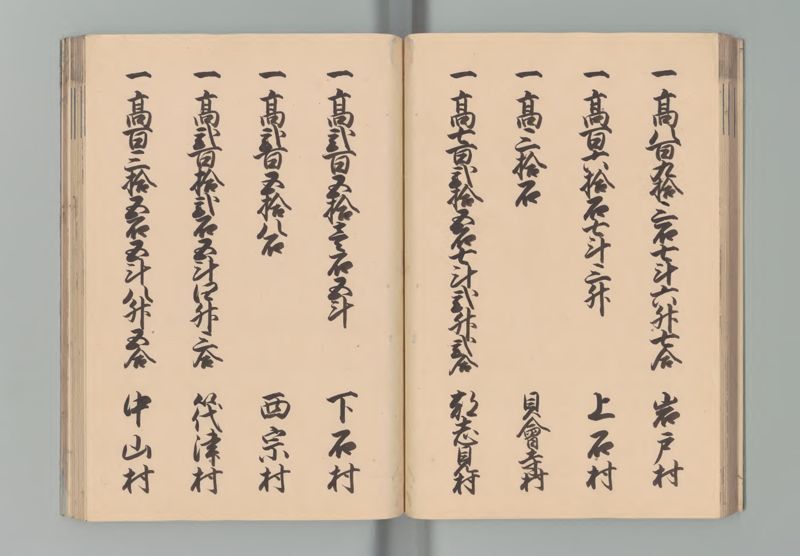 一高八百九拾三石七斗六升七合 岩戸村
一高百六拾石七斗三升 上石村
一高三拾石 貝會寺村
一高七百弐拾五石七斗弐升弐合 都志見村
一高弐百五拾壱石五斗 下石村
一高弐百五拾八石 西宗村
一高弐百拾弐石五斗四升三合 筏津村
一高百三拾五石五斗八升五合 中山村